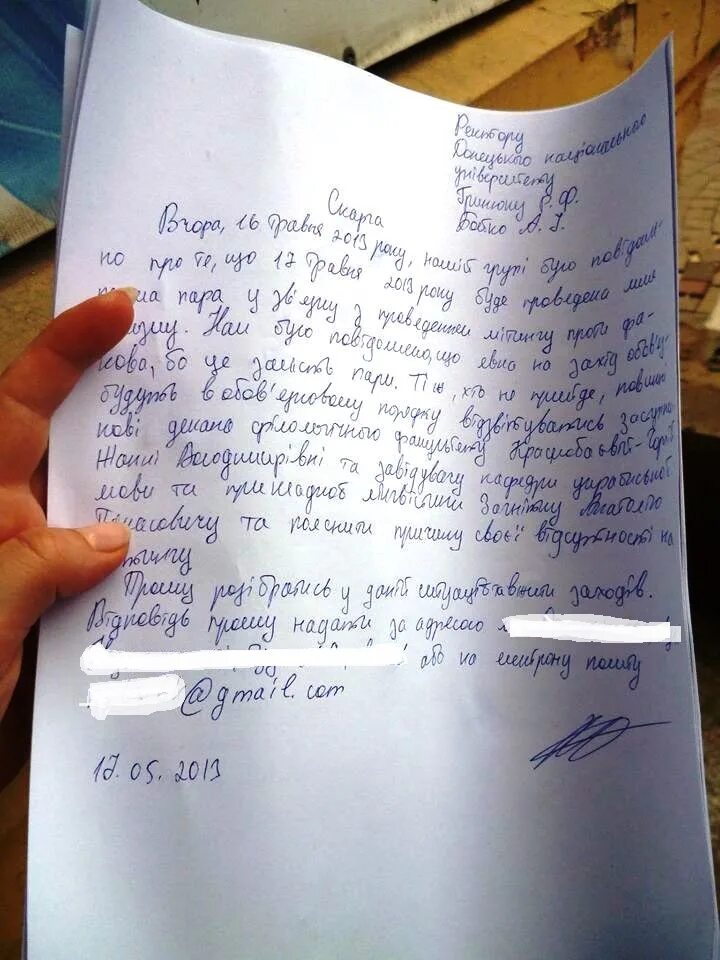 Ректору
Донецького національного
університету
Гринюку Р. Ф.
Бобко А. І.
Скарга
Вчора, 16 травня 2013 року, нашій групі було повідомле-
но про те, що 17 травня 2013 року буде проведена лише
пара у зв'язку з проведенням мітингу проти фа-
шизму. Нам було повідомлено, що явка на захід обов'яз-
кова, бо це замість пари. Ті, хто не прийде, повинні
будуть в обов'язковому порядку відзвітуватись заступни-
кові декана філологічного факультету
Жанні Володимирівні та завідувачу кафедри української
мови та прикладної лінгвістики Загнітку Анатолію
Панасовичу та пояснити причину своєї відсутності на
мітингу
Прошу розібратись у даній ситуації та вжити заходів.
Відповідь прошу надати за адресою
або на електрону пошту
@gmail.com
17.05.2013